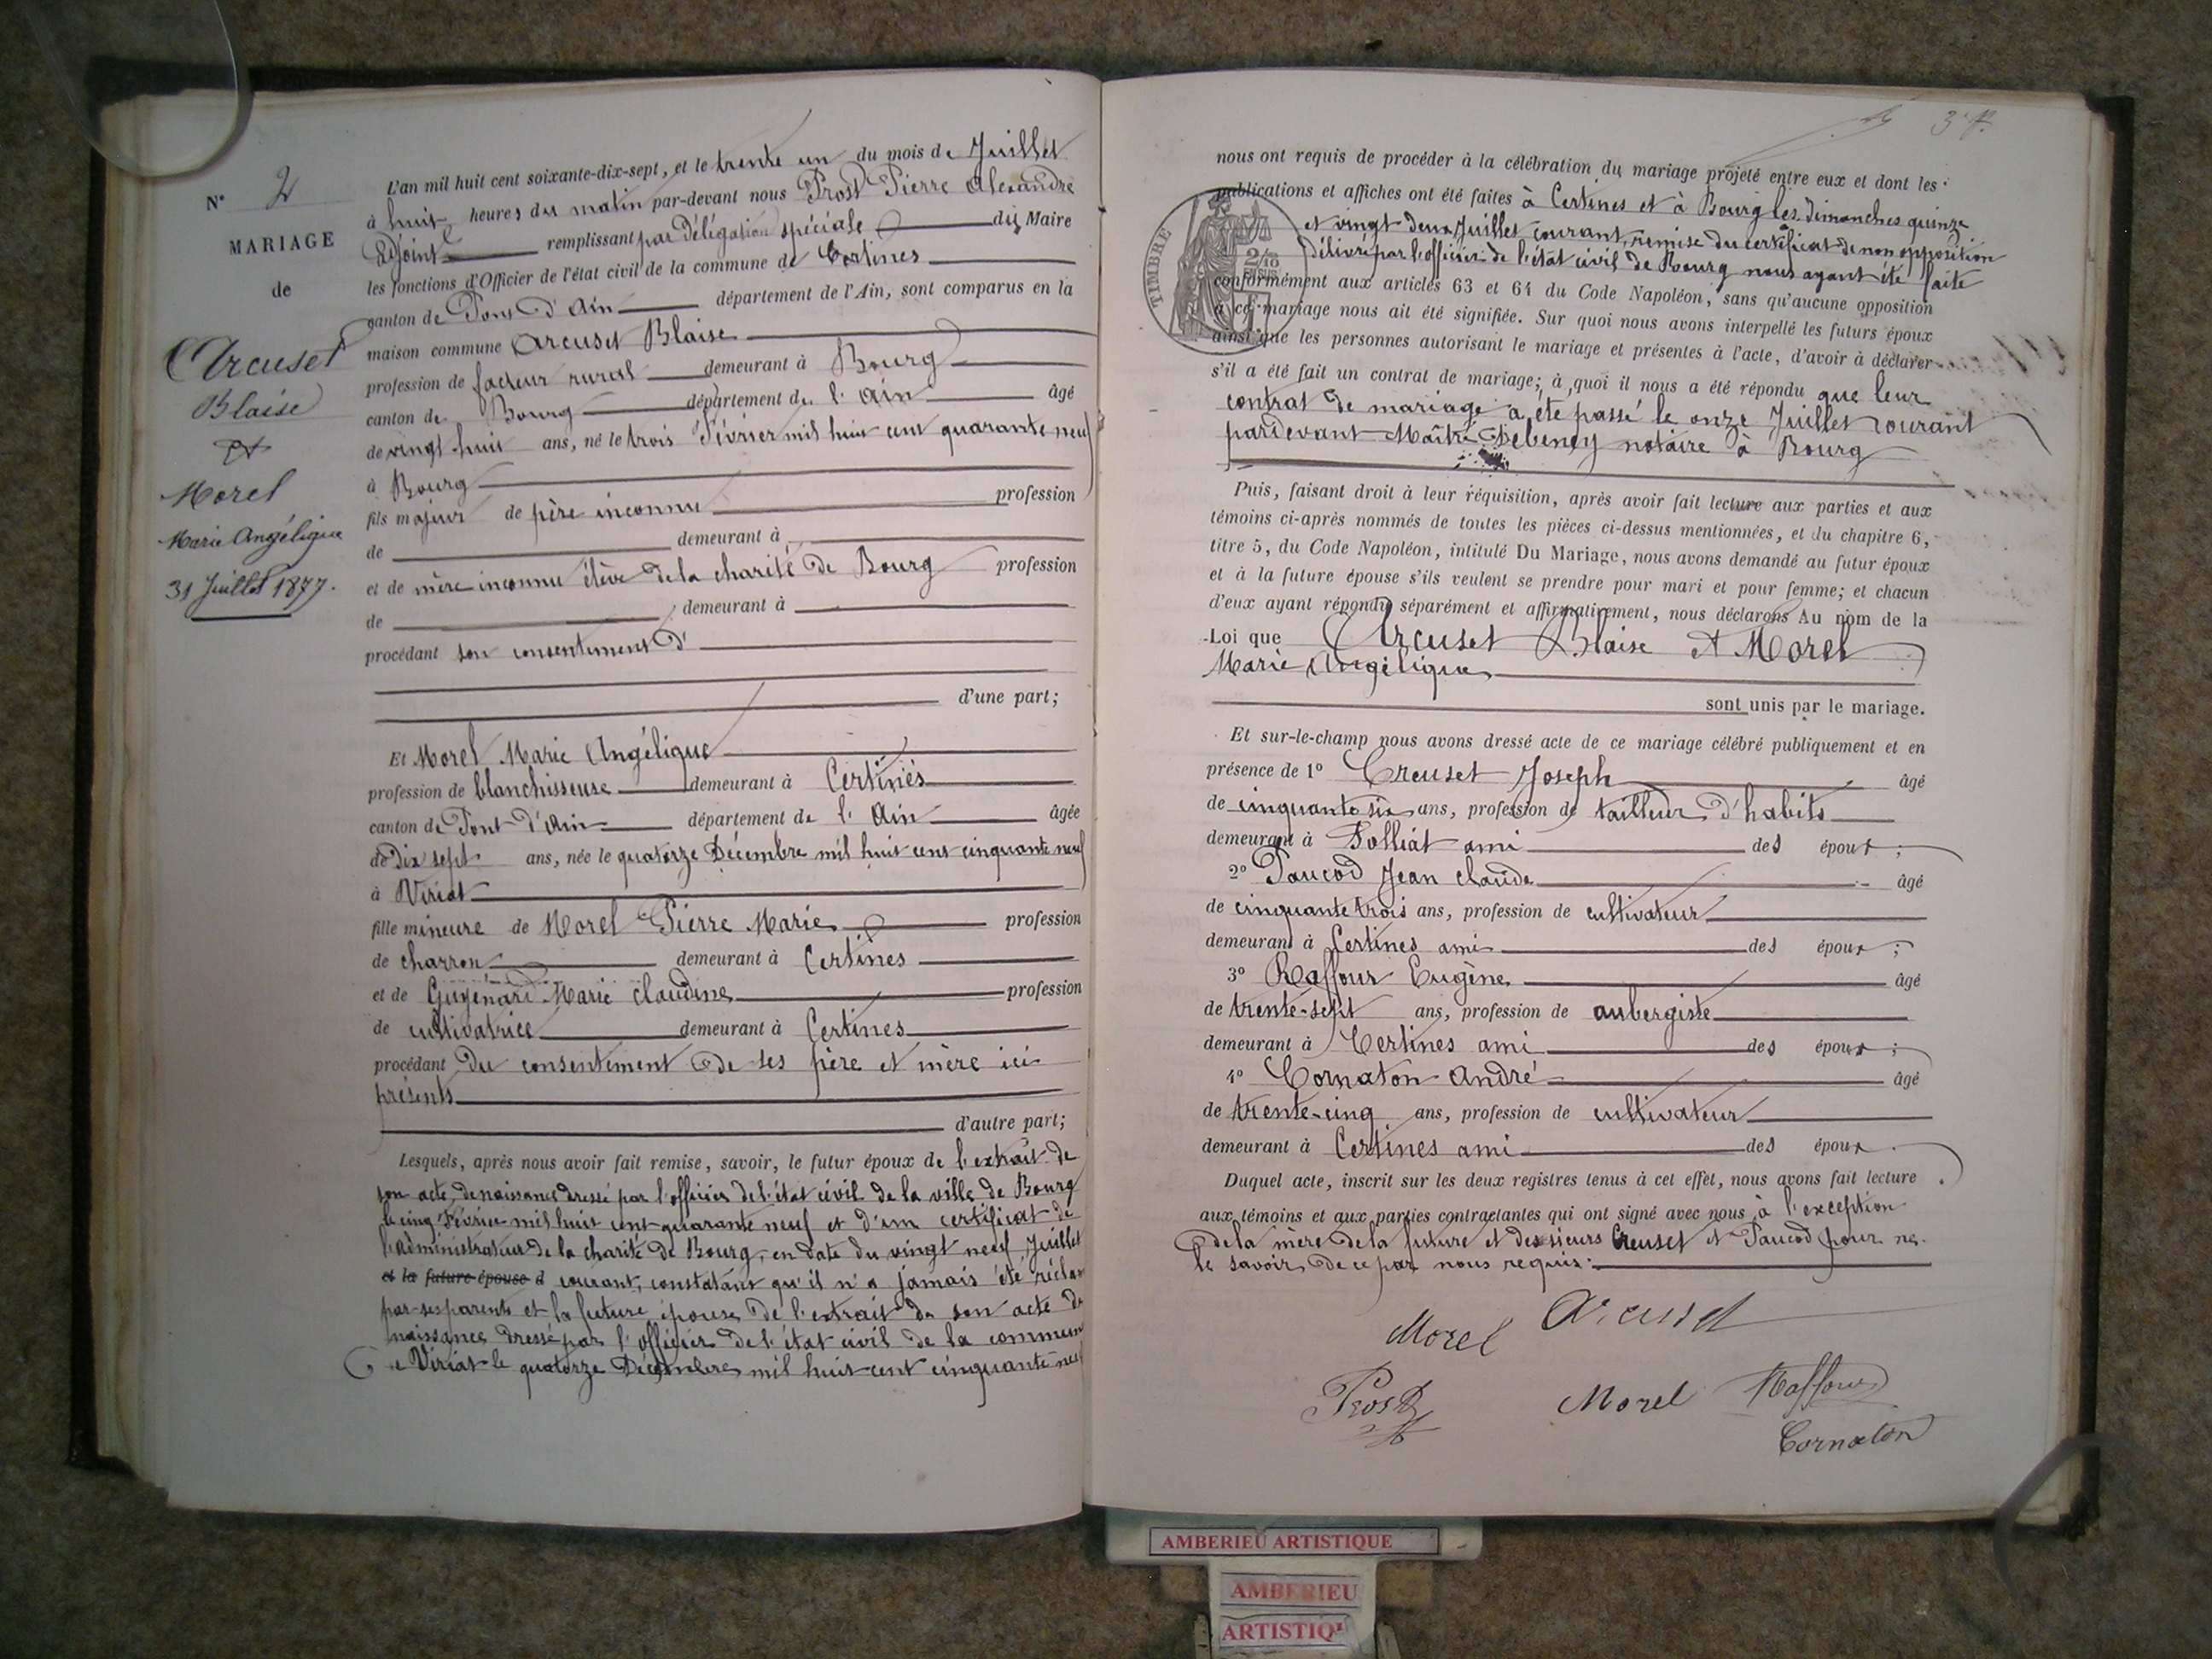 N° 2
MARIAGE
de
Arcuset
Blaise
et
Morel
Marie Angélique
31 Juillet 1877.
L'an mil huit cent soixante-dix-sept, et le trente un du mois de Juillet
à huit heures du matin par-devant nous Prost Pierre Alexandre
Adjoint remplissant par Délégation spéciale du Maire
les fonctions d'Officier de l'état civil de la commune de Certines
canton de Pont d'Ain département de l'Ain, sont comparus en la
maison commune Arcuset Blaise
profession de facteur rural demeurant à Bourg
canton de Bourg département de l'Ain âgé
de vingt huit ans, né le trois Février mil huit cent quarante neuf
à Bourg
fils majeur de père inconnu profession
de demeurant à
et de mère inconnue élève de la charité de Bourg profession
de demeurant à
procédant son consentement d'
d'une part;
Et Morel Marie Angélique
profession de blanchisseuse demeurant à Certines
canton de Pont-d'Ain département de l'Ain âgée
de Dix sept ans, née le quatorze Décembre mil huit cent cinquante neuf
à Viriat
fille mineure de Morel Pierre Marie profession
de charron demeurant à Certines
et de Guyénard Marie claudine profession
de cultivatrice demeurant à Certines
procédant Du consentement de ses père et mère ici
présents
d'autre part;
Lesquels, après nous avoir fait remise, savoir, le futur époux de l'extrait de
son acte de naissance dressé par l'officier de l'état civil de la ville de Bourg
le cinq Février mil huit cent quarante neuf et d'un certificat de
l'administrateur de la charité de Bourg, en date du vingt neuf Juillet
et la future épouse d courant, constatant qu'il n'a jamais été réclamé
par ses parents et la future épouse De l'extrait de son acte de
naissance dressé par l'officier de l'état civil de la commune
de Viriat le quatorze Décembre mil huit cent cinquante neuf
nous ont requis de procéder à la célébration du mariage projeté entre eux et dont les
publications et affiches ont été faites à Certines et à Bourg les Dimanches quinze
et vingt deux Juillet courant, remise du certificat de non opposition
Délivré par l'officier de l'état civil de Bourg nous ayant été faite
conformément aux articles 63 et 64 du Code Napoléon, sans qu'aucune opposition
à ce mariage nous ait été signifiée. Sur quoi nous avons interpellé les futurs époux
ainsi que les personnes autorisant le mariage et présentes à l'acte, d'avoir à déclarer
s'il a été fait un contrat de mariage; à quoi il nous a été répondu que leur
contrat de mariage a été passé le onze Juillet courant
pardevant Maître Debeney notaire à Bourg
TIMBRE
2/10
EN SUS
Puis, faisant droit à leur réquisition, après avoir fait lecture aux parties et aux
témoins ci-après nommés de toutes les pièces ci-dessus mentionnées, et du chapitre 6,
titre 5, du Code Napoléon, intitulé Du Mariage, nous avons demandé au futur époux
et à la future épouse s'ils veulent se prendre pour mari et pour femme; et chacun
d'eux ayant répondu séparément et affirmativement, nous déclarons Au nom de la
Loi que Arcuset Blaise et Morel
Marie Angélique
sont unis par le mariage.
Et sur-le-champ nous avons dressé acte de ce mariage célébré publiquement et en
présence de 1° Creuset Joseph âgé
de cinquante six ans, profession de tailleur d'habits
demeurant à Folliat ami des époux;
2° Paucod Jean claude âgé
de cinquante trois ans, profession de cultivateur
demeurant à Certines ami des époux;
3° Raffour Eugène âgé
de trente-sept ans, profession de aubergiste
demeurant à Certines ami des époux;
4° Cornaton André âgé
de trente-cinq ans, profession de cultivateur
demeurant à Certines ami des époux.
Duquel acte, inscrit sur les deux registres tenus à cet effet, nous avons fait lecture
aux témoins et aux parties contractantes qui ont signé avec nous à l'exception
de la mère de la future et des sieurs Creuset et Paucod pour ne
le savoir, de ce par nous requis.
Morel Arcuset
Prost Morel Raffour
Cornaton
AMBERIEU ARTISTIQUE
AMBERIEU
ARTISTIQ